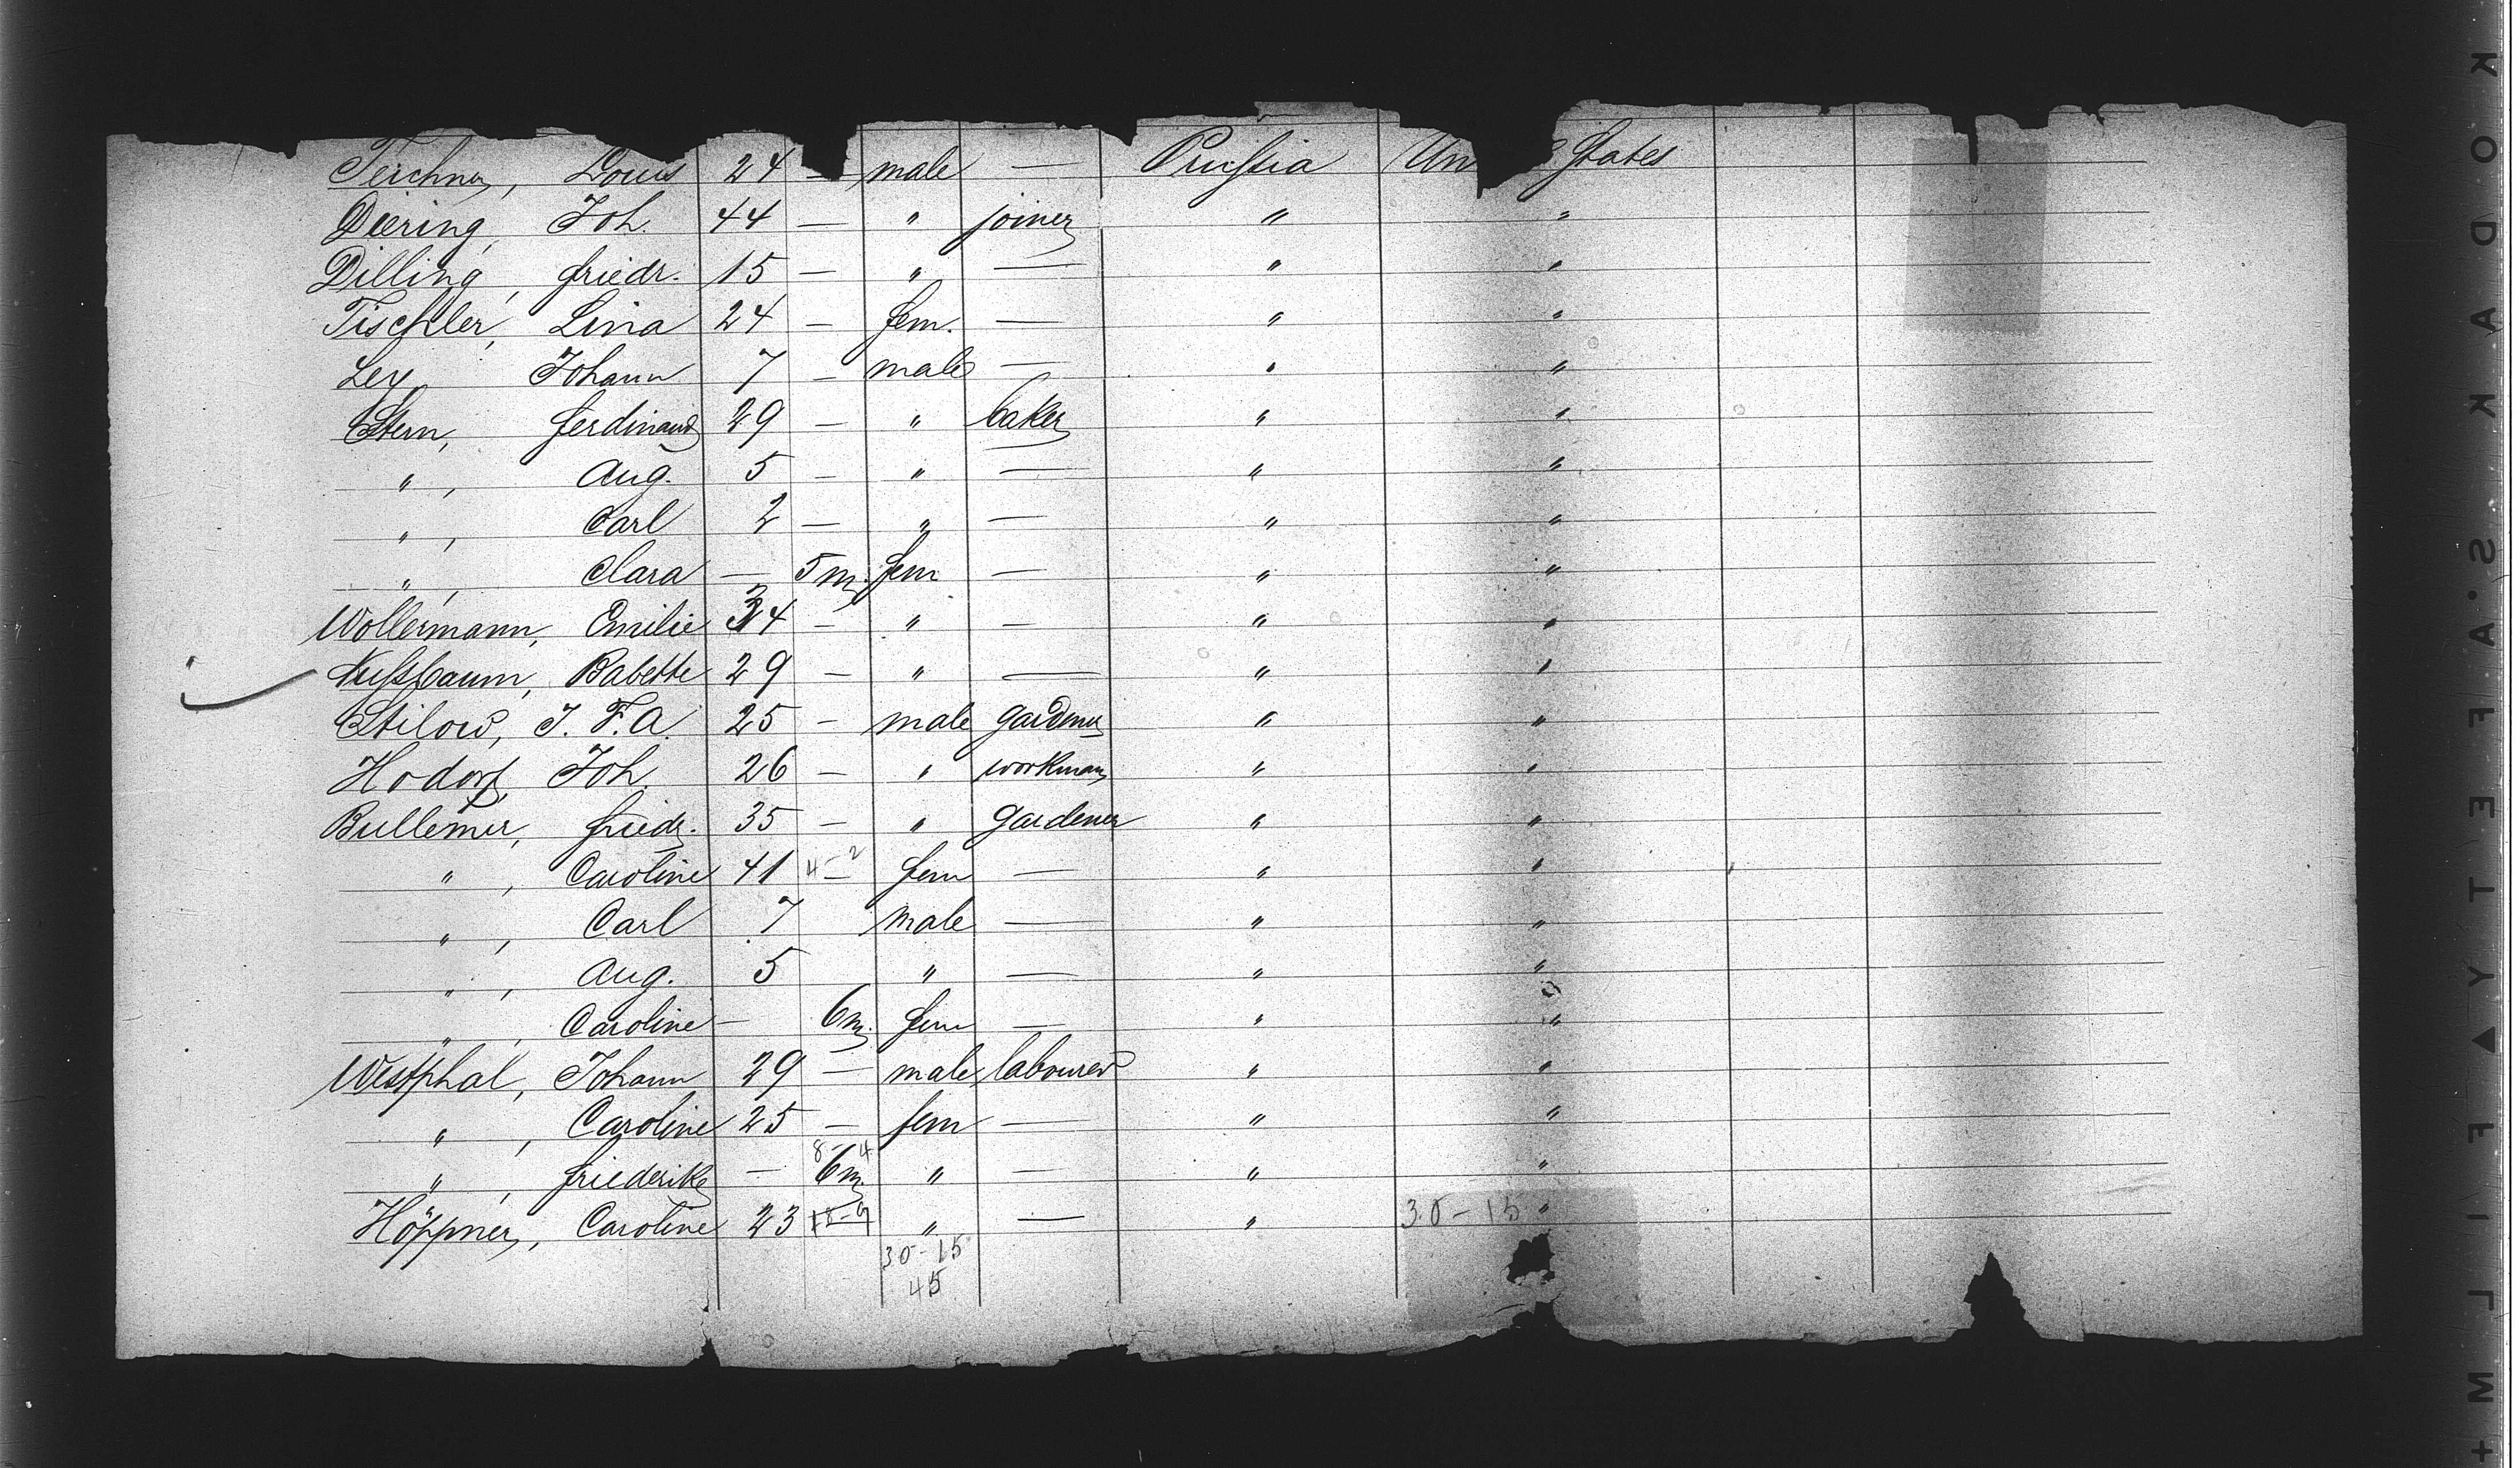 Teichner, Louis 24 — male — Prussia Un States
Diering, Joh. 44 — " joiner " "
Dilling, Friedr. 15 — " — " "
Tischler, Lina 24 — fem. — " "
Ley Johann 7 — male — " "
Stern, Ferdinand 29 — " baker " "
" , Aug. 5 — " — " "
" , Carl 2 — " — " "
" , Clara — 5 m. fem — " "
Wollermann, Emilie 34 — " — " "
Nußbaum, Babette 29 — " — " "
Stilow, J. F. A. 25 — male gardener " "
Hodorf, Joh. 26 — " workman " "
Bullemer, Friedr. 35 — " gardener " "
" , Caroline 41 4-2 — fem — " "
" , Carl 7 male — " "
" , Aug. 5 " — " "
" , Caroline — 6 m. fem — " "
Westphal, Johann 29 — male labourer " "
" , Caroline 25 — fem — " "
8-4
" , Friederike — 6 m. " — " "
Höppner, Caroline 23 " — " 30-15 "
30-15
45
KODAK·S.AFETY▲FILM+